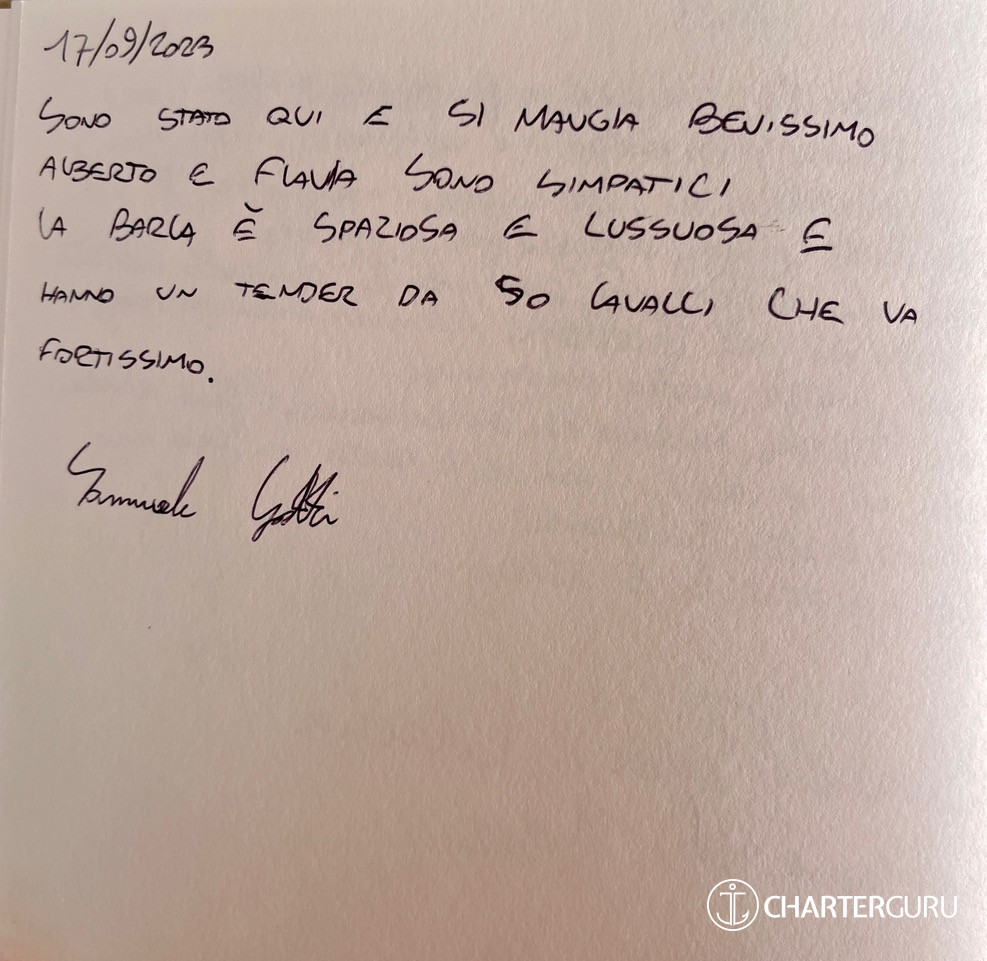 17/09/2023
SONO STATO QUI E SI MANGIA BENISSIMO
ALBERTO E FLAVIA SONO SIMPATICI
LA BARCA È SPAZIOSA E LUSSUOSA E
HANNO UN TENDER DA 50 CAVALLI CHE VA
FORTISSIMO.
Samuele
CHARTERGURU